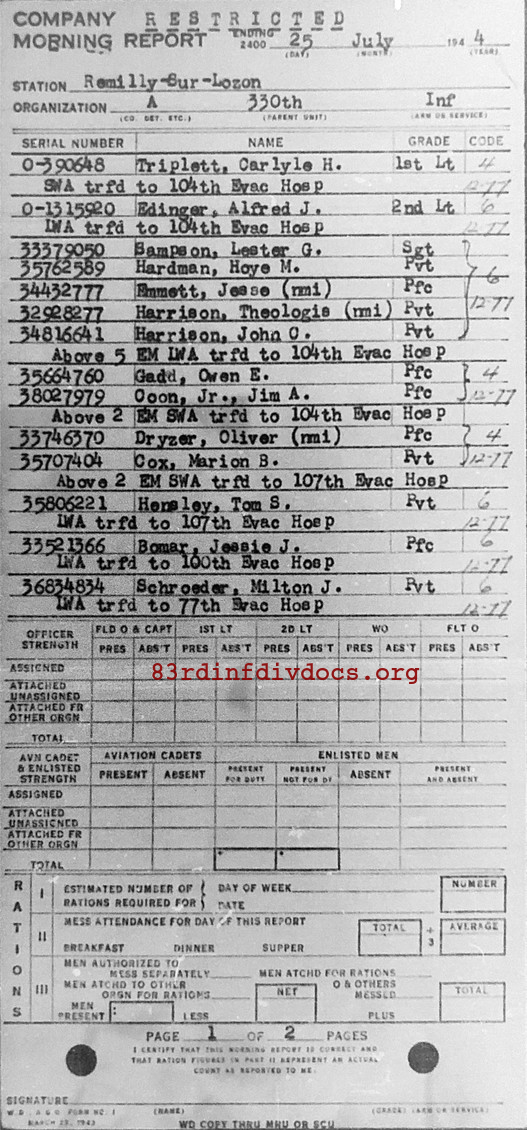 COMPANY RESTRICTED
MORNING REPORT ENDING 2400 25 July 1944
(DAY) (MONTH) (YEAR)
STATION Remilly-Sur-Lozon
ORGANIZATION A 330th Inf
(CO. DET. ETC.) (PARENT UNIT) (ARM OR SERVICE)
SERIAL NUMBER NAME GRADE CODE
O-390648 Triplett, Carlyle H. 1st Lt 4
SWA trfd to 104th Evac Hosp 12-77
O-1315920 Edinger, Alfred J. 2nd Lt 6
LWA trfd to 104th Evac Hosp 12-77
33379050 Sampson, Lester G. Sgt
35762589 Hardman, Hoye M. Pvt
34432777 Emmett, Jesse (nmi) Pfc 6
32928277 Harrison, Theologis (nmi) Pvt 12-77
34816641 Harrison, John C. Pvt
Above 5 EM LWA trfd to 104th Evac Hosp
35664760 Gadd, Owen E. Pfc 4
38027979 Coon, Jr., Jim A. Pfc 12-77
Above 2 EM SWA trfd to 104th Evac Hosp
33746370 Dryzer, Oliver (nmi) Pfc 4
35707404 Cox, Marion B. Pvt 12-77
Above 2 EM SWA trfd to 107th Evac Hosp
35806221 Hensley, Tom S. Pvt 6
LWA trfd to 107th Evac Hosp 12-77
33521366 Bomar, Jessie J. Pfc 6
LWA trfd to 100th Evac Hosp 12-77
36834834 Schroeder, Milton J. Pvt 6
LWA trfd to 77th Evac Hosp 12-77
OFFICER STRENGTH FLD O & CAPT 1ST LT 2D LT WO FLT O
PRES ABS'T PRES ABS'T PRES ABS'T PRES ABS'T PRES ABS'T
ASSIGNED
83rdinfdivdocs.org
ATTACHED UNASSIGNED
ATTACHED FR OTHER ORGN
TOTAL
AVN CADET & ENLISTED STRENGTH AVIATION CADETS ENLISTED MEN
PRESENT ABSENT PRESENT FOR DUTY PRESENT NOT FOR DY ABSENT PRESENT AND ABSENT
ASSIGNED
ATTACHED UNASSIGNED
ATTACHED FR OTHER ORGN
TOTAL
RATIONS
I ESTIMATED NUMBER OF RATIONS REQUIRED FOR DAY OF WEEK DATE NUMBER
II MESS ATTENDANCE FOR DAY OF THIS REPORT TOTAL ÷ 3 AVERAGE
BREAKFAST DINNER SUPPER
III MEN AUTHORIZED TO MESS SEPARATELY MEN ATCHD FOR RATIONS
MEN ATCHD TO OTHER ORGN FOR RATIONS NET O & OTHERS MESSED TOTAL
MEN PRESENT LESS PLUS
PAGE 1 OF 2 PAGES
I CERTIFY THAT THIS MORNING REPORT IS CORRECT AND
THAT RATION FIGURES IN PART II REPRESENT AN ACTUAL
COUNT AS REPORTED TO ME.
SIGNATURE
W. D., A G O FORM NO. 1 (NAME) (GRADE) (ARM OR SERVICE)
MARCH 23, 1943 WD COPY THRU MRU OR SCU